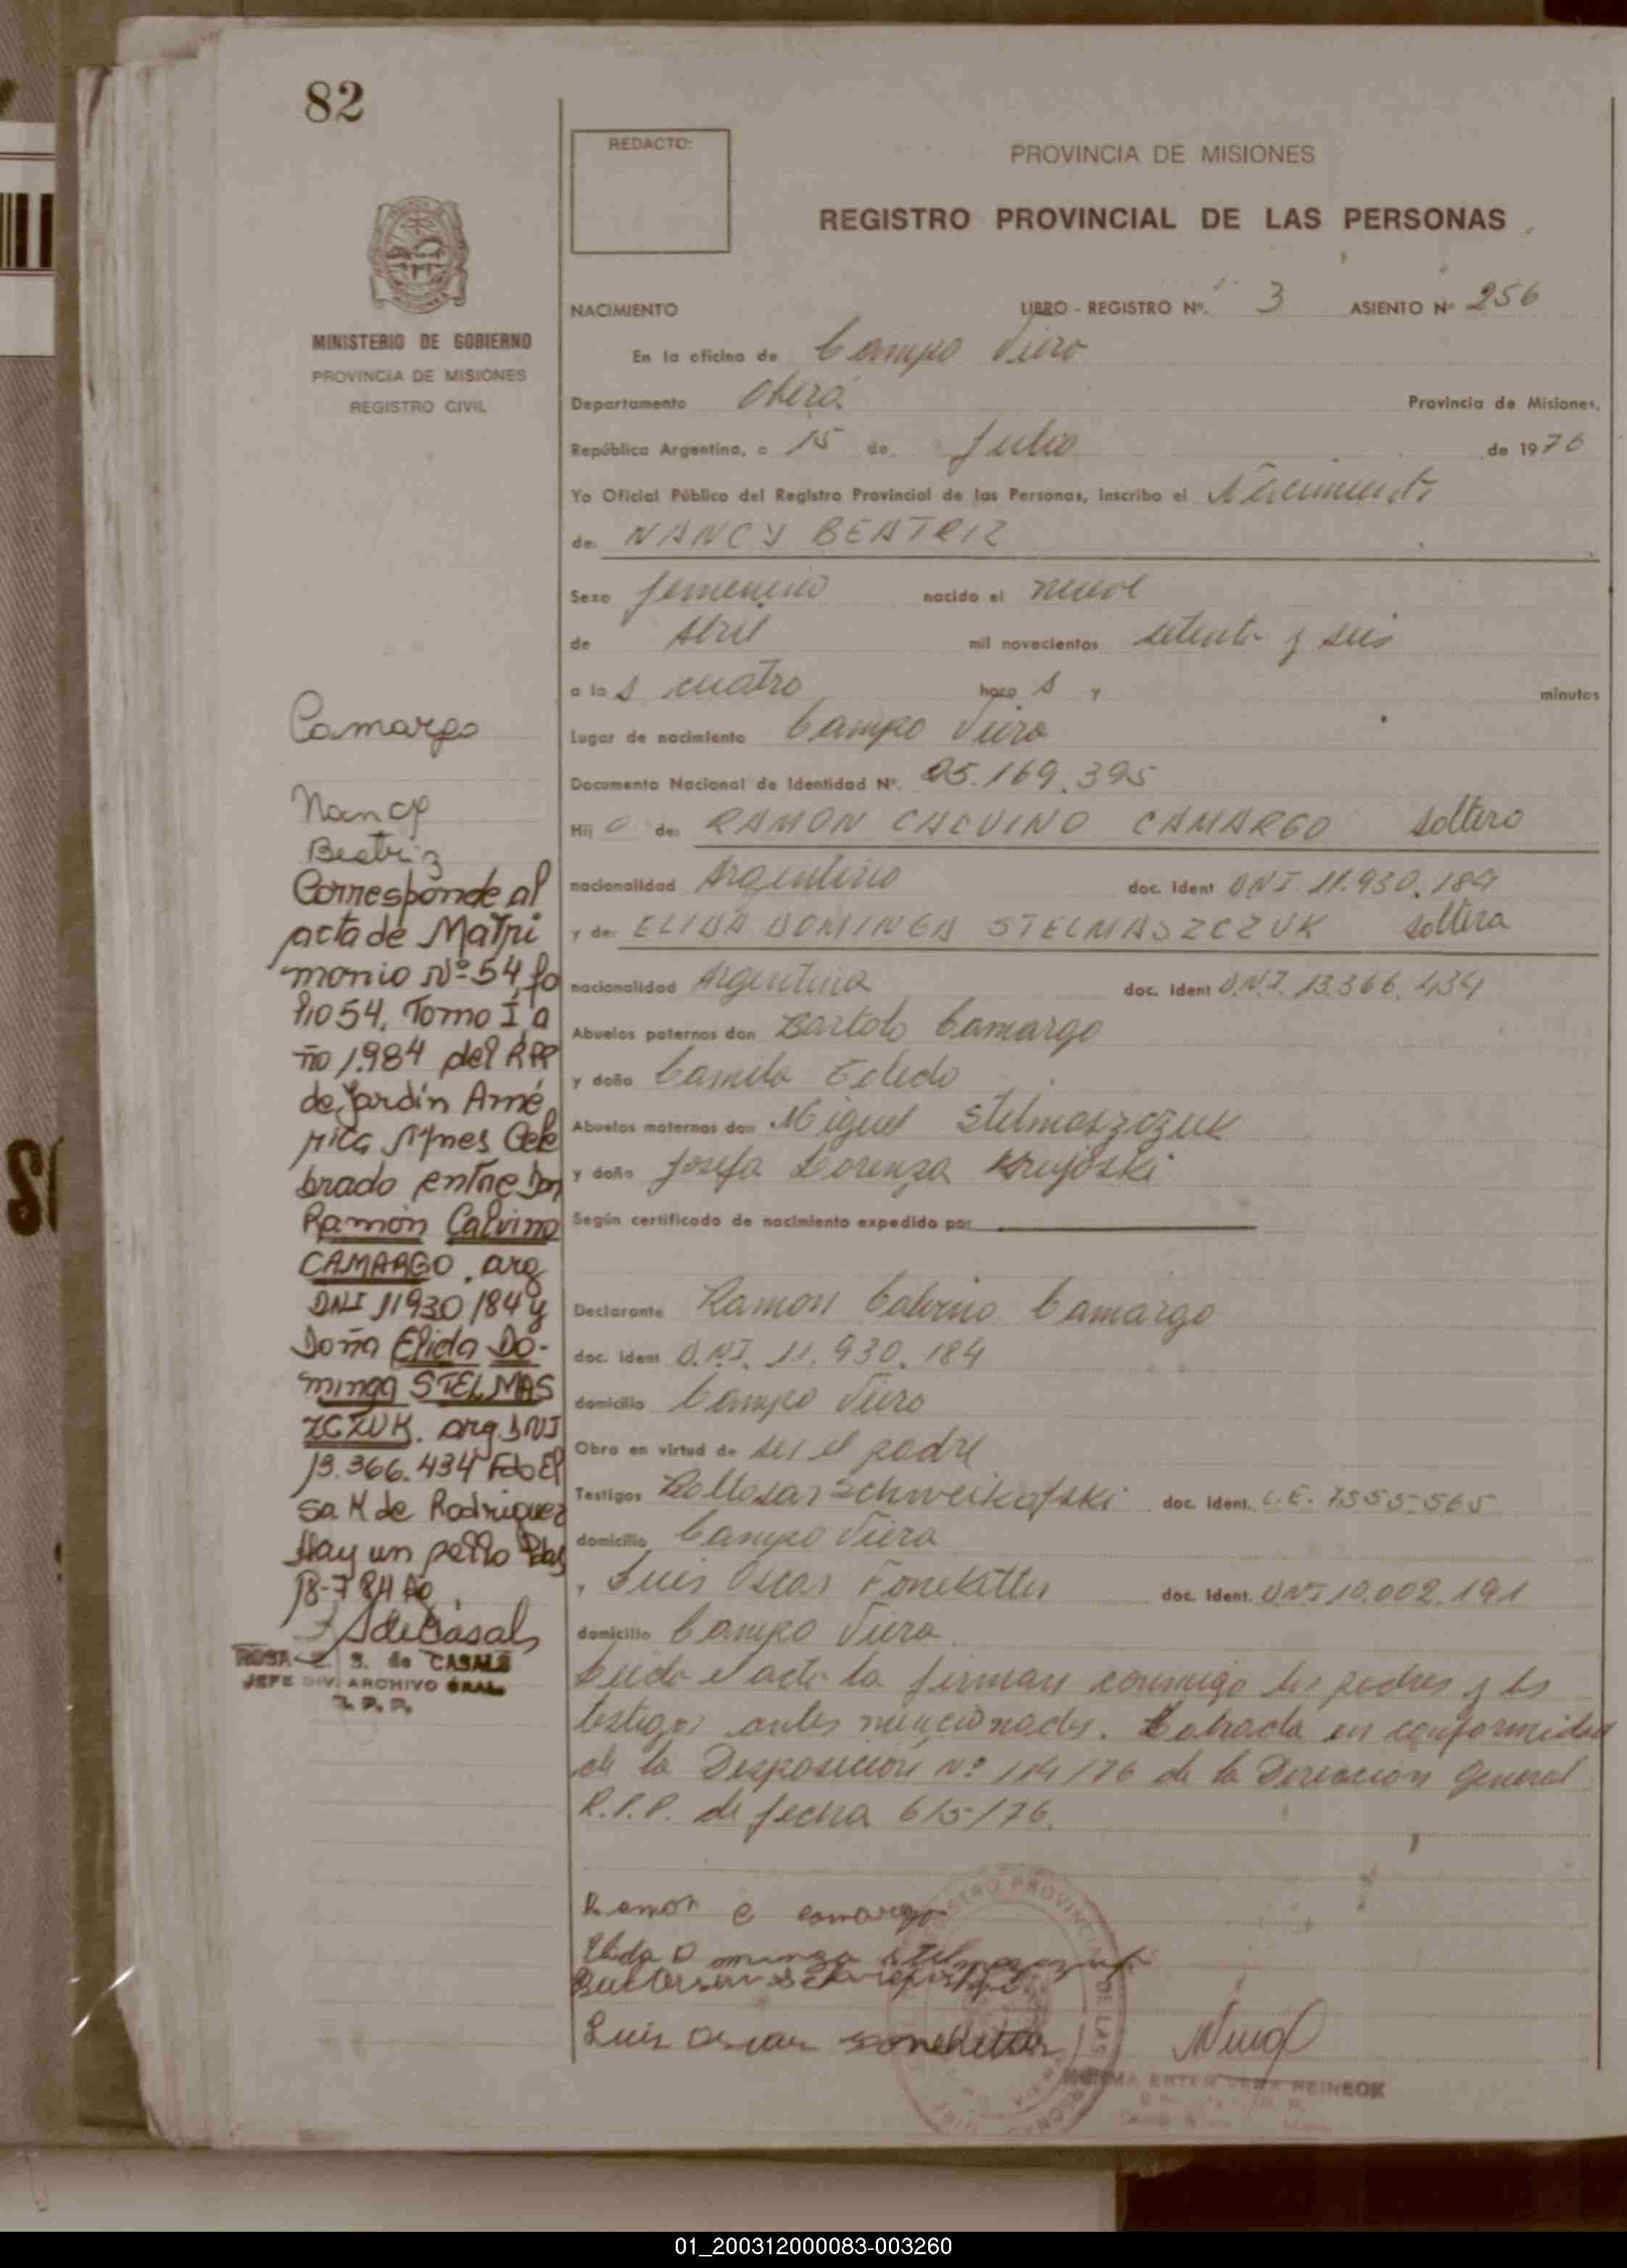 82
REDACTO:
PROVINCIA DE MISIONES
REGISTRO PROVINCIAL DE LAS PERSONAS
MINISTERIO DE GOBIERNO
PROVINCIA DE MISIONES
REGISTRO CIVIL
NACIMIENTO LIBRO - REGISTRO Nº. 3 ASIENTO Nº 256
En la oficina de Campo Viera
Departamento Oberá Provincia de Misiones,
República Argentina, a 15 de Julio de 1976
Yo Oficial Público del Registro Provincial de las Personas, inscribo el Nacimiento
de: NANCY BEATRIZ
Sexo femenino nacido el nueve
de Abril mil novecientos setenta y seis
a las cuatro horas y minutos
Lugar de nacimiento Campo Viera
Documento Nacional de Identidad Nº. 25.169.395
Hij a de: RAMON CALVINO CAMARGO soltero
nacionalidad Argentino doc. Ident D.N.I. 11.930.184
y de: ELIDA DOMINGA STELMASZCZUK soltera
nacionalidad Argentina doc. Ident D.N.I. 13.366.434
Abuelos paternos don Bartolo Camargo
y doña Camila Toledo
Abuelos maternos don Miguel Stelmaszczuk
y doña Josefa Lorenza
Según certificado de nacimiento expedido por
Declarante Ramon Calvino Camargo
doc. Ident D.N.I. 11.930.184
domicilio Campo Viera
Obra en virtud de ser el padre
Testigos Baltasar Schweikofski doc. ident. L.E. 7.555.565
domicilio Campo Viera
y Luis Oscar doc. Ident. DNI 10.002.191
domicilio Campo Viera
Leida el acta la firman conmigo los padres y los
testigos antes mencionados. Labrada en conformidad
de la Disposicion Nº 114/76 de la Direccion General
R.P.P. de fecha 6/5/76.
Ramon C camargo
Elida Dominga Stelmaszczuk
Luis Oscar
REINECK
Camargo
Nancy
Beatriz
Corresponde al
acta de Matri
monio Nº 54, fo
lio 54, Tomo I, a
ño 1.984 del RPP
de Jardin Amé
rica Mnes Cele
brado entre Don
Ramón Calvino
CAMARGO, arg
DNI 11930184 y
Doña Elida Do-
minga STELMAS
ZCZUK. arg. DNI
13.366.434 Fdo El
sa K de Rodriguez
Hay un sello Pdas
18-7 84
S de Casals
ROSA S. de CASALS
JEFE DIV. ARCHIVO GRAL.
R. P. P.
01_200312000083-003260